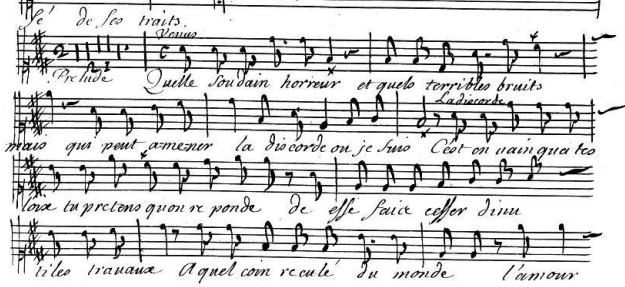 sé de ses traits.
Venus
Prelude Quelle soudain horreur et quels terribles bruits
La discorde
mais qui peut amener la discorde ou je suis C'est en vain qua tes
loix tu pretens quon re ponde de esse faire cesser dinu
tiles travaux A quel coin reculé du monde l'amour